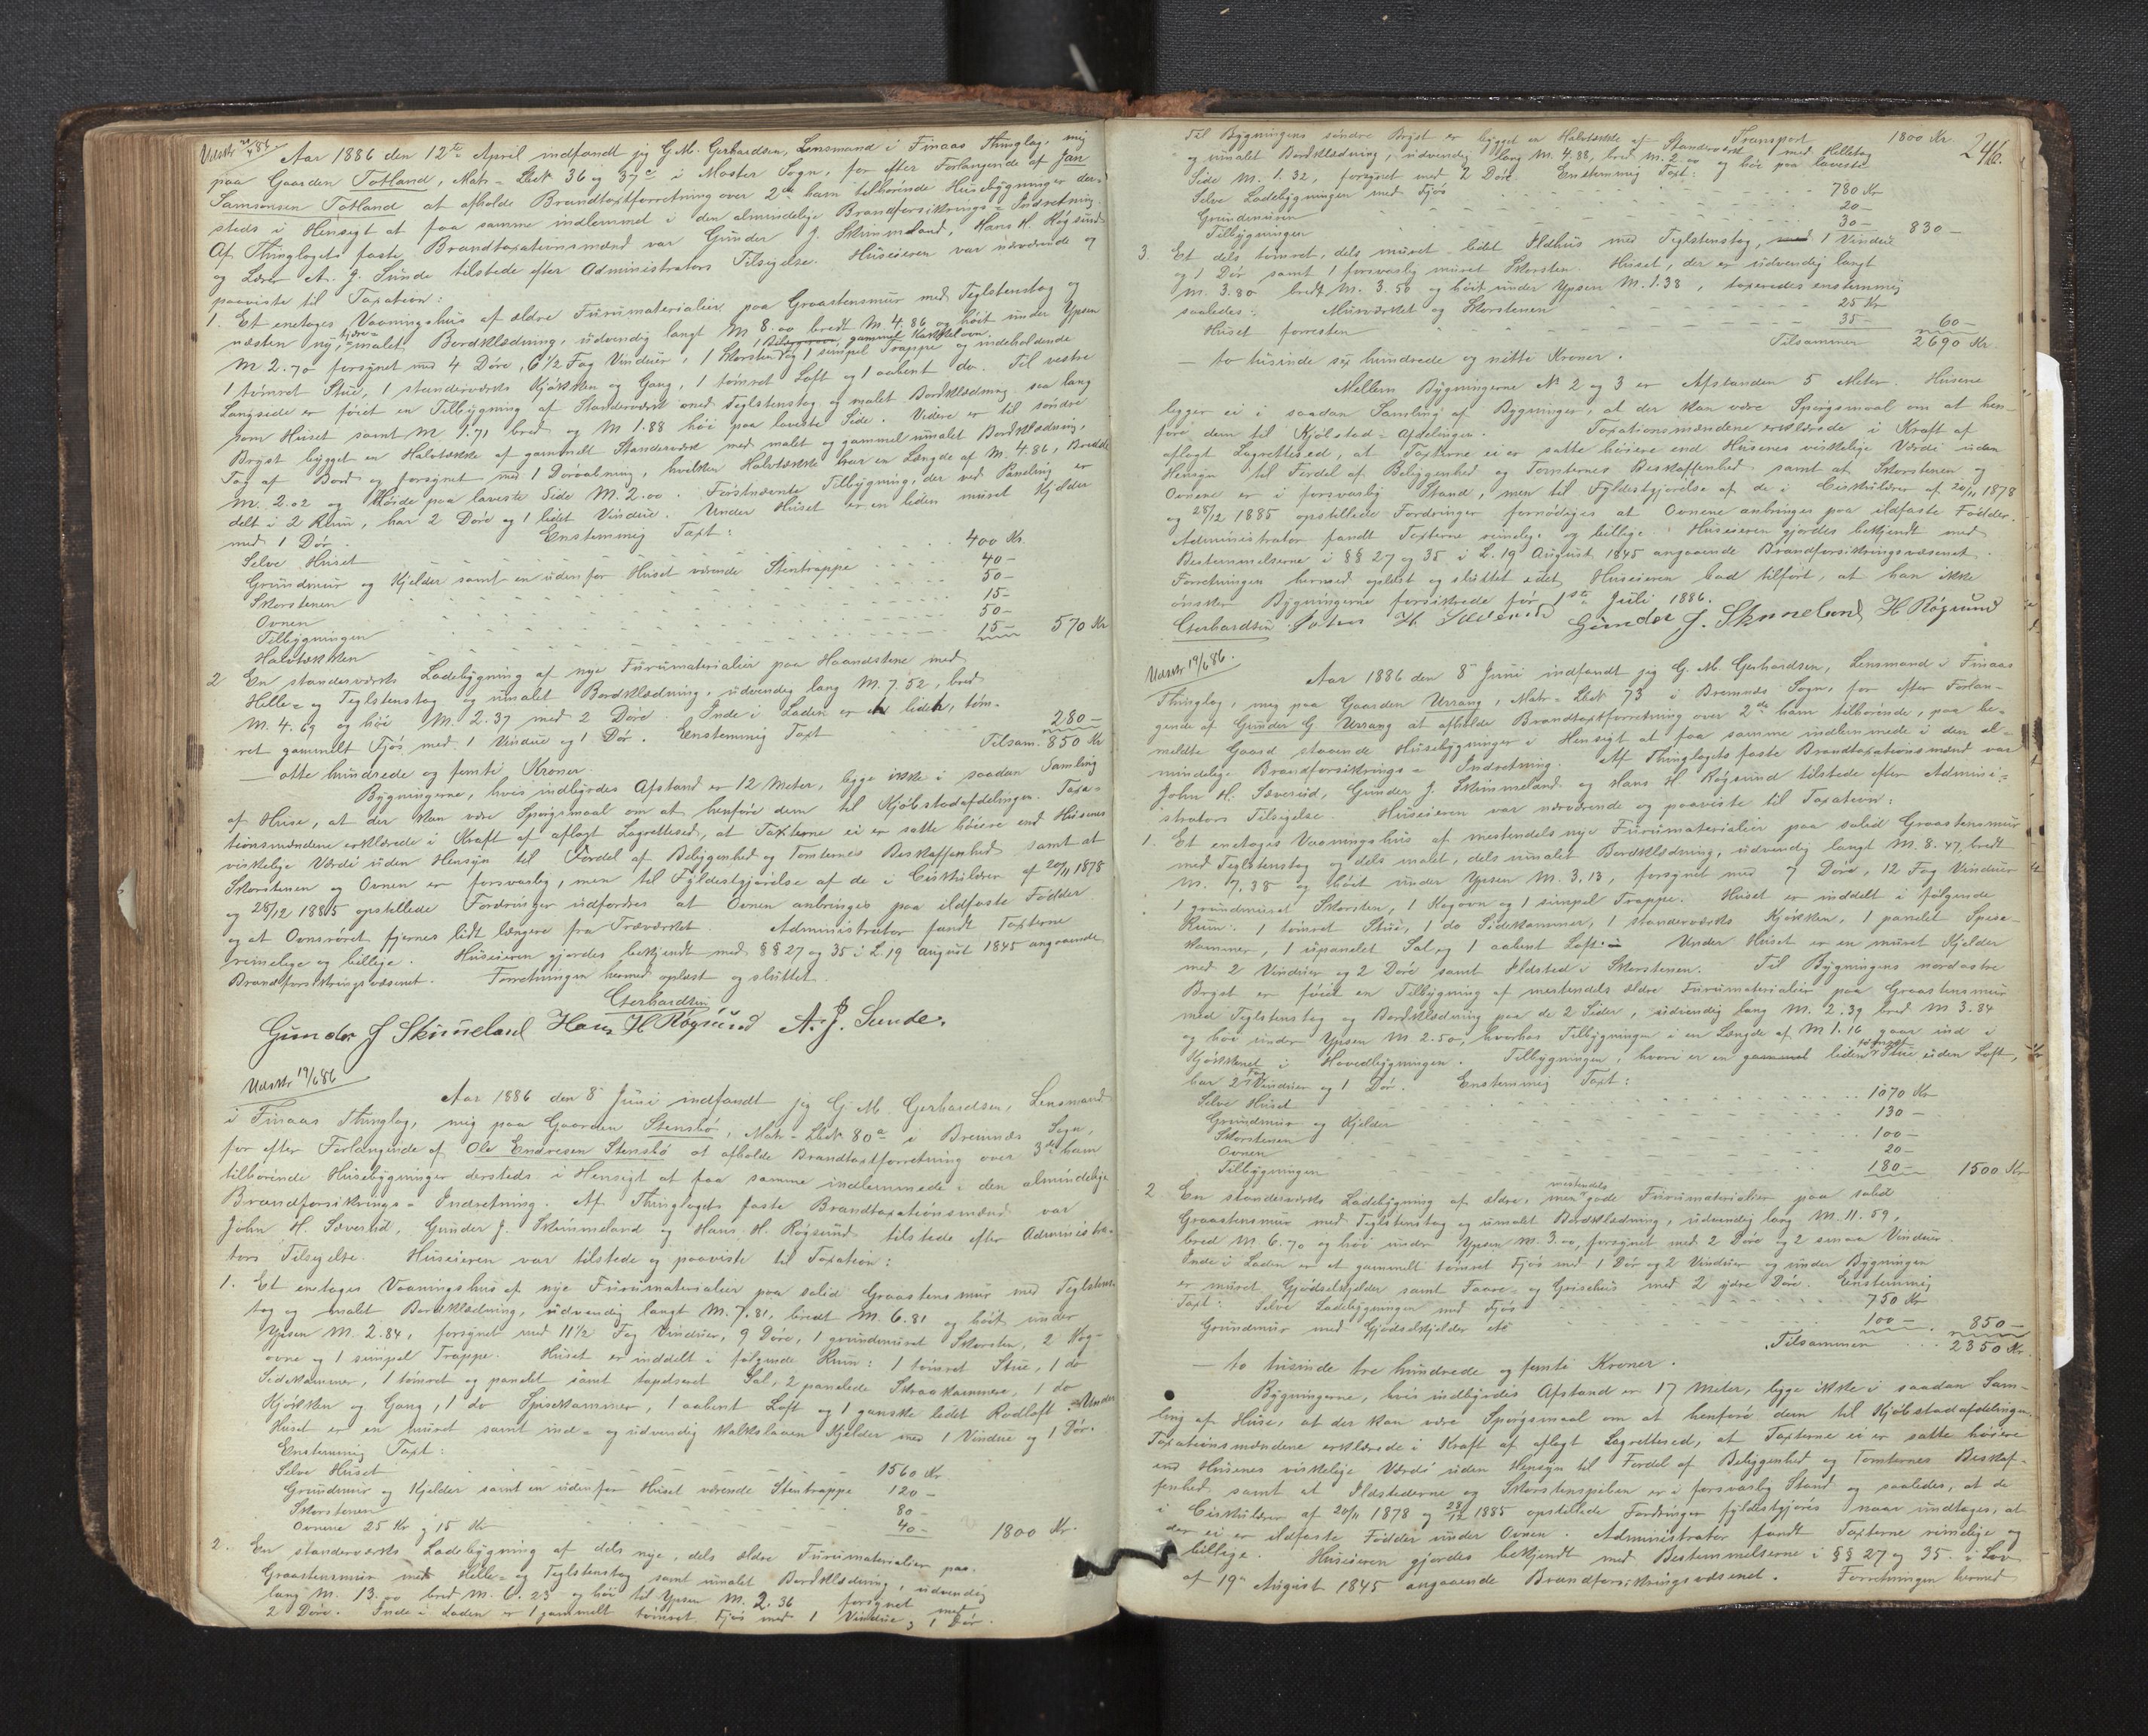 Udskr 20/4 86
Aar 1886 den 12te April indfandt jeg G. M. Gerhardsen, Lensmand i Finaas Thinglag, mig
paa Gaarden Totland, Matr-Lbek 36 og 37c i Moster Sogn, for efter Forlangende af Jan
Samsonsen Totland at afholde Brandtaxtforretning over 2de ham tilhørende Husebygninger der-
steds i Hensigt at faa samme indlemmet i den almindelige Brandforsikrings-Indretning.
Af Thinglagets faste Brandtaxationsmænd var Gunder J. Skimmeland, Hans H. Røgsund
og Lærer A. J. Sunde tilstede efter Administrators Tilsigelse. Huseieren var nærværende og
paaviste til Taxation:
1. Et enetages Vaaningshus af ældre Furumaterialier paa Graastensmur med Teglstenstag og
næsten ny, umalet Bordklædning, udvendig langt M 8.00 bredt M. 4.86 og høit under Ypsen
gammel Kakkelovn
M 2.70 forsynet med 4 Døre, 6 1/2 Fag Vinduer, 1 Skorsten og 1 simpel Trappe og indeholdende
1 tømret Stue, 1 standerværks Kjøkken og Gang, 1 tømret Loft og 1 aabent do. Til vestre
Langside er føiet en Tilbygning af Standerværk med Teglstenstag og malet Bordklædning saa lang
som Huset samt M 1.71 bred og M 1.88 høi paa laveste Side. Videre er til søndre
Bryst bygget en Halvtække af gammelt Standerværk med malet og gammel umalet Bordklædning,
Tag af Bord og forsynet med 1 Døraabning, hvilken Halvtække har en Længde af M. 4.86, Bredde
M. 2.02 og Høide paa laveste Side M. 2.00. Førstnævnte Tilbygning, der ved Paneling er
delt i 2 Rum, har 2 Døre og 1 lidet Vindue. Under Huset er en liden muret Kjelder
med 1 Dør. Enstemmig Taxt:
Selve Huset 400 Kr.
Grundmur og Kjelder samt en udenfor Huset værende Stentrappe 40-
Skorstenen 50-
Ovnen 15-
Tilbygningen 50-
Halvtækken 15- 570 Kr
2 En standerværks Ladebygning af nye Furumaterialier paa Haandstene med
Helle- og Teglstenstag og umalet Bordklædning, udvendig lang M. 7.52, bred
M. 4.69 og høi M. 2.37 med 2 Døre. Inde i Laden er et lidet, tøm-
ret gammelt Fjøs med 1 Vindue og 1 Dør. Enstemmig Taxt 280-
Tilsam. 850 Kr
- otte hundrede og femti Kroner.
Bygningerne, hvis indbyrdes Afstand er 12 Meter, ligge ikke i saadan Samling
af Huse, at der kan være Spørgsmaal om at henføre dem til Kjøbstadafdelingen. Taxa-
tionsmændene erklærede i Kraft af aflagt Lagrettesed, at Taxterne ei er satte høiere end Husenes
virkelige Værdi uden Hensyn til Fordel af Beliggenhed og Tomternes Beskaffenhed samt at
Skorstenen og Ovnen er forsvarlig, men til Fyldestgjørelse af de i Cirkulærer af 20/11 1878
og 28/12 1885 opstillede Fordringer udfordres at Ovnen anbringes paa ildfaste Fødder
og at Ovnsrøret fjernes lidt længere fra Træværket. Administrator fandt Taxterne
rimelige og billige. Huseieren gjordes bekjendt med §§ 27 og 35 i L. 19 august 1845 angaaende
Brandforsikringsvæsenet. Forretningen hermed oplæst og sluttet.
Gerhardsen
Gunder J Skimeland Hans H Røgsund A. J. Sunde.
Udskr 19/6 86
Aar 1886 den 8 Juni indfandt jeg G. M. Gerhardsen, Lensmand
i Finaas Thinglag, mig paa Gaarden Stensbø, Matr-Lbek 80a i Bremnæs Sogn,
for efter Forlangende af Ole Endresen Stensbø at afholde Brandtaxtforretning over 3de ham
tilhørende Husebygninger dersteds i Hensigt at faa samme indlemmede i den almindelige
Brandforsikrings-Indretning. Af Thinglagets faste Brandtaxationsmænd var
John H. Sæverud, Gunder J. Skimmeland og Hans H. Røgsund tilstede efter Administra-
tors Tilsigelse. Huseieren var tilstede og paaviste til Taxation:
1. Et enetages Vaaningshus af nye Furumaterialier paa solid Graastensmur med Teglstens-
tag og malet Bordklædning, udvendig langt M. 7.81, bredt M. 6.81 og høit under
Ypsen M. 2.84, forsynet med 11 1/2 Fag Vinduer, 9 Døre, 1 grundmuret Skorsten, 2 Kog-
ovne og 1 simpel Trappe. Huset er inddelt i følgende Rum: 1 tømret Stue, 1 do
Sidekammer, 1 tømret og panelet samt tapetseret Sal, 2 panelede Skraakammere, 1 do
Kjøkken og Gang, 1 do Spisekammer, 1 aabent Loft og 1 ganske lidet Rodloft. Under
Huset er en muret samt ind- og udvendig kalkslaaen Kjelder med 1 Vindue og 1 Dør.
Enstemmig Taxt:
Selve Huset 1560 Kr.
Grundmur og Kjelder samt en udenfor Huset værende Stentrappe 120-
Skorstenen 80-
Ovnene 25 Kr og 15 Kr 40- 1800 Kr.
2. En standerværks Ladebygning af dels nye, dels ældre Furumaterialier paa
Graastensmur med Helle- og Teglstenstag samt umalet Bordklædning, udvendig
lang M. 13.00 bred M. 6.23 og høi til Ypsen M. 2.36 forsynet med
2 Døre. Inde i Laden er 1 gammelt tømret Fjøs med 1 Vindue og 1 Dør.
246.
Transport 1800 Kr
Til Bygningens søndre Bryst er bygget en Halvtække af Standerværk med Helletag
og umalet Bordklædning, udvendig lang M. 4.88, bred M. 2.00 og høi paa laveste
Side M. 1.32, forsynet med 2 Døre. Enstemmig Taxt:
Selve Ladebygningen med Fjøs 780 Kr
Grundmuren 20-
Tilbygningen 30- 830-
3. Et dels tømret, dels muret lidet Ildhus med Teglstenstag, med 1 Vindue
og 1 Dør samt 1 forsvarlig muret Skorsten. Huset, der er udvendig langt
M. 3.80 bredt M. 3.50 og høit under Ypsen M. 1.38, taxeredes enstemmig
saaledes: Murværket og Skorstenen 25 Kr
Huset forresten 35- 60-
Tilsammen 2690 Kr.
- to tusinde sex hundrede og nitti Kroner.
Mellem Bygningerne No 2 og 3 er Afstanden 5 Meter. Husene
ligger ei i saadan Samling af Bygninger, at der kan være Spørgsmaal om at hen-
føre dem til Kjøbstad-Afdelingen. Taxationsmændene erklærede i Kraft af
aflagt Lagrettesed, at Taxterne ei er satte høiere end Husenes virkelige Værdi uden
Hensyn til Fordel af Beliggenhed og Tomternes Beskaffenhed samt at Skorstenen og
Ovnene er i forsvarlig Stand, men til Fyldestgjørelse af de i Cirkulærer af 20/11 1878
og 28/12 1885 opstillede Fordringer fornødiges at Ovnene anbringes paa ildfaste Fødder.
Administrator fandt Taxterne rimelige og billige. Huseieren gjordes bekjendt med
Bestemmelserne i §§ 27 og 35 i L. 19 August 1845 angaaende Brandforsikringsvæsenet.
Forretningen hermed oplæst og sluttet idet Huseieren bad tilført, at han ikke
ønsker Bygningerne forsikrede før 1ste Juli 1886.
Gerhardsen H. Gunder J. Skimeland H Røgsund
Udskr 19/6 86.
Aar 1886 den 8 Juni indfandt jeg G. M. Gerhardsen, Lensmand i Finaas
Thinglag, mig paa Gaarden Urrang, Matr-Lbek 73 i Bremnæs Sogn, for efter Forlan-
gende af Gunder G Urrang at afholde Brandtaxtforretning over 2de ham tilhørende, paa be-
meldte Gaard staaende Husebygninger i Hensigt at faa samme indlemmede i den al-
mindelige Brandforsikrings-Indretning. Af Thinglagets faste Brandtaxationsmænd var
John H. Sæverud, Gunder J. Skimmeland og Hans H Røgsund tilstede efter Admini-
strators Tilsigelse. Huseieren var nærværende og paaviste til Taxation:
1. Et enetages Vaaningshus af mestendels nye Furumaterialier paa solid Graastensmur
med Teglstenstag og dels malet, dels umalet Bordklædning, udvendig langt M. 8.47, bredt
M. 7.38 og høit under Ypsen M. 3.13, forsynet med 7 Døre, 12 Fag Vinduer
1 grundmuret Skorsten, 1 Kogovn og 1 simpel Trappe. Huset er inddelt i følgende
Rum: 1 tømret Stue, 1 do Sidekammer, 1 standerværks Kjøkken, 1 panelet Spise-
kammer, 1 upanelet Sal og 1 aabent Loft. Under Huset er en muret Kjelder
med 2 Vinduer og 2 Døre samt Ildsted i Skorstenen. Til Bygningens nordøstre
Bryst er føiet en Tilbygning af mestendels ældre Furumaterialier paa Graastensmur
med Teglstenstag og Bordklædning paa de 2 Sider, udvendig lang M. 2.39 bred M 3.84
og høi under Ypsen M 2.50, hvorhos Tilbygningen i en Længde af M 1.16 gaar ind i
Kjøkkenet i Hovedbygningen. Tilbygningen, hvori er en gammel liden tømret Stue uden Loft,
har 2 Fag Vinduer og 1 Dør. Enstemmig Taxt:
Selve Huset 1070 Kr
Grundmur og Kjelder 130-
Skorstenen 100-
Ovnen 20-
Tilbygningen 180- 1500 Kr
2 En standerværks Ladebygning af ældre, men mestendels gode Furumaterialier paa solid
Graastensmur med Teglstenstag og umalet Bordklædning, udvendig lang M. 11.59,
bred M 6.70 og høi under Ypsen M. 3.00, forsynet med 2 Døre og 2 smaa Vinduer
Inde i Laden er et gammelt tømret Fjøs med 1 Dør og 2 Vinduer og under Bygningen
er muret Gjødselkjelder samt Faare- og Grisehus med 2 ydre Døre. Enstemmig
Taxt: Selve Ladebygningen med Fjøs 750 Kr
Grundmur med Gjødselkjelder etc 100- 850-
Tilsammen 2350 Kr.
- to tusinde tre hundrede og femti Kroner.
Bygningerne, hvis indbyrdes Afstand er 17 Meter, ligge ikke i saadan Sam-
ling af Huse, at der kan være Spørgsmaal om at henføre dem til Kjøbstadafdelingen.
Taxationsmændene erklærede i Kraft af aflagt Lagrettesed, at Taxterne ei er satte høiere
end Husenes virkelige Værdi uden Hensyn til Fordel af Beliggenhed og Tomternes Beskaf-
fenhed samt at Ildstederne og Skorstenspiben er i forsvarlig Stand og saaledes, at de
i Cirkulærer af 20/11 1878 og 28/12 1885 opstillede Fordringer fyldestgjøres naar undtages, at
der ei er ildfaste Fødder under Ovnen. Administrator fandt Taxterne rimelige og
billige. Huseieren gjordes bekjendt med Bestemmelserne i §§ 27 og 35 i Lov
af 19 August 1845 angaaende Brandforsikringsvæsenet. Forretningen hermed